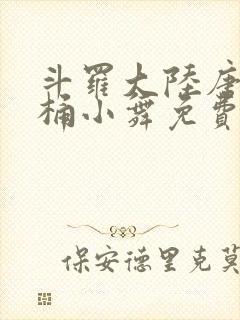 斗羅大陸唐
桶小舞免費
保安德里克莫